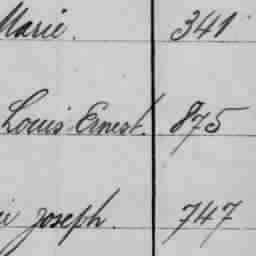 Marie. 341
Louis Ernest. 875
Joseph. 747